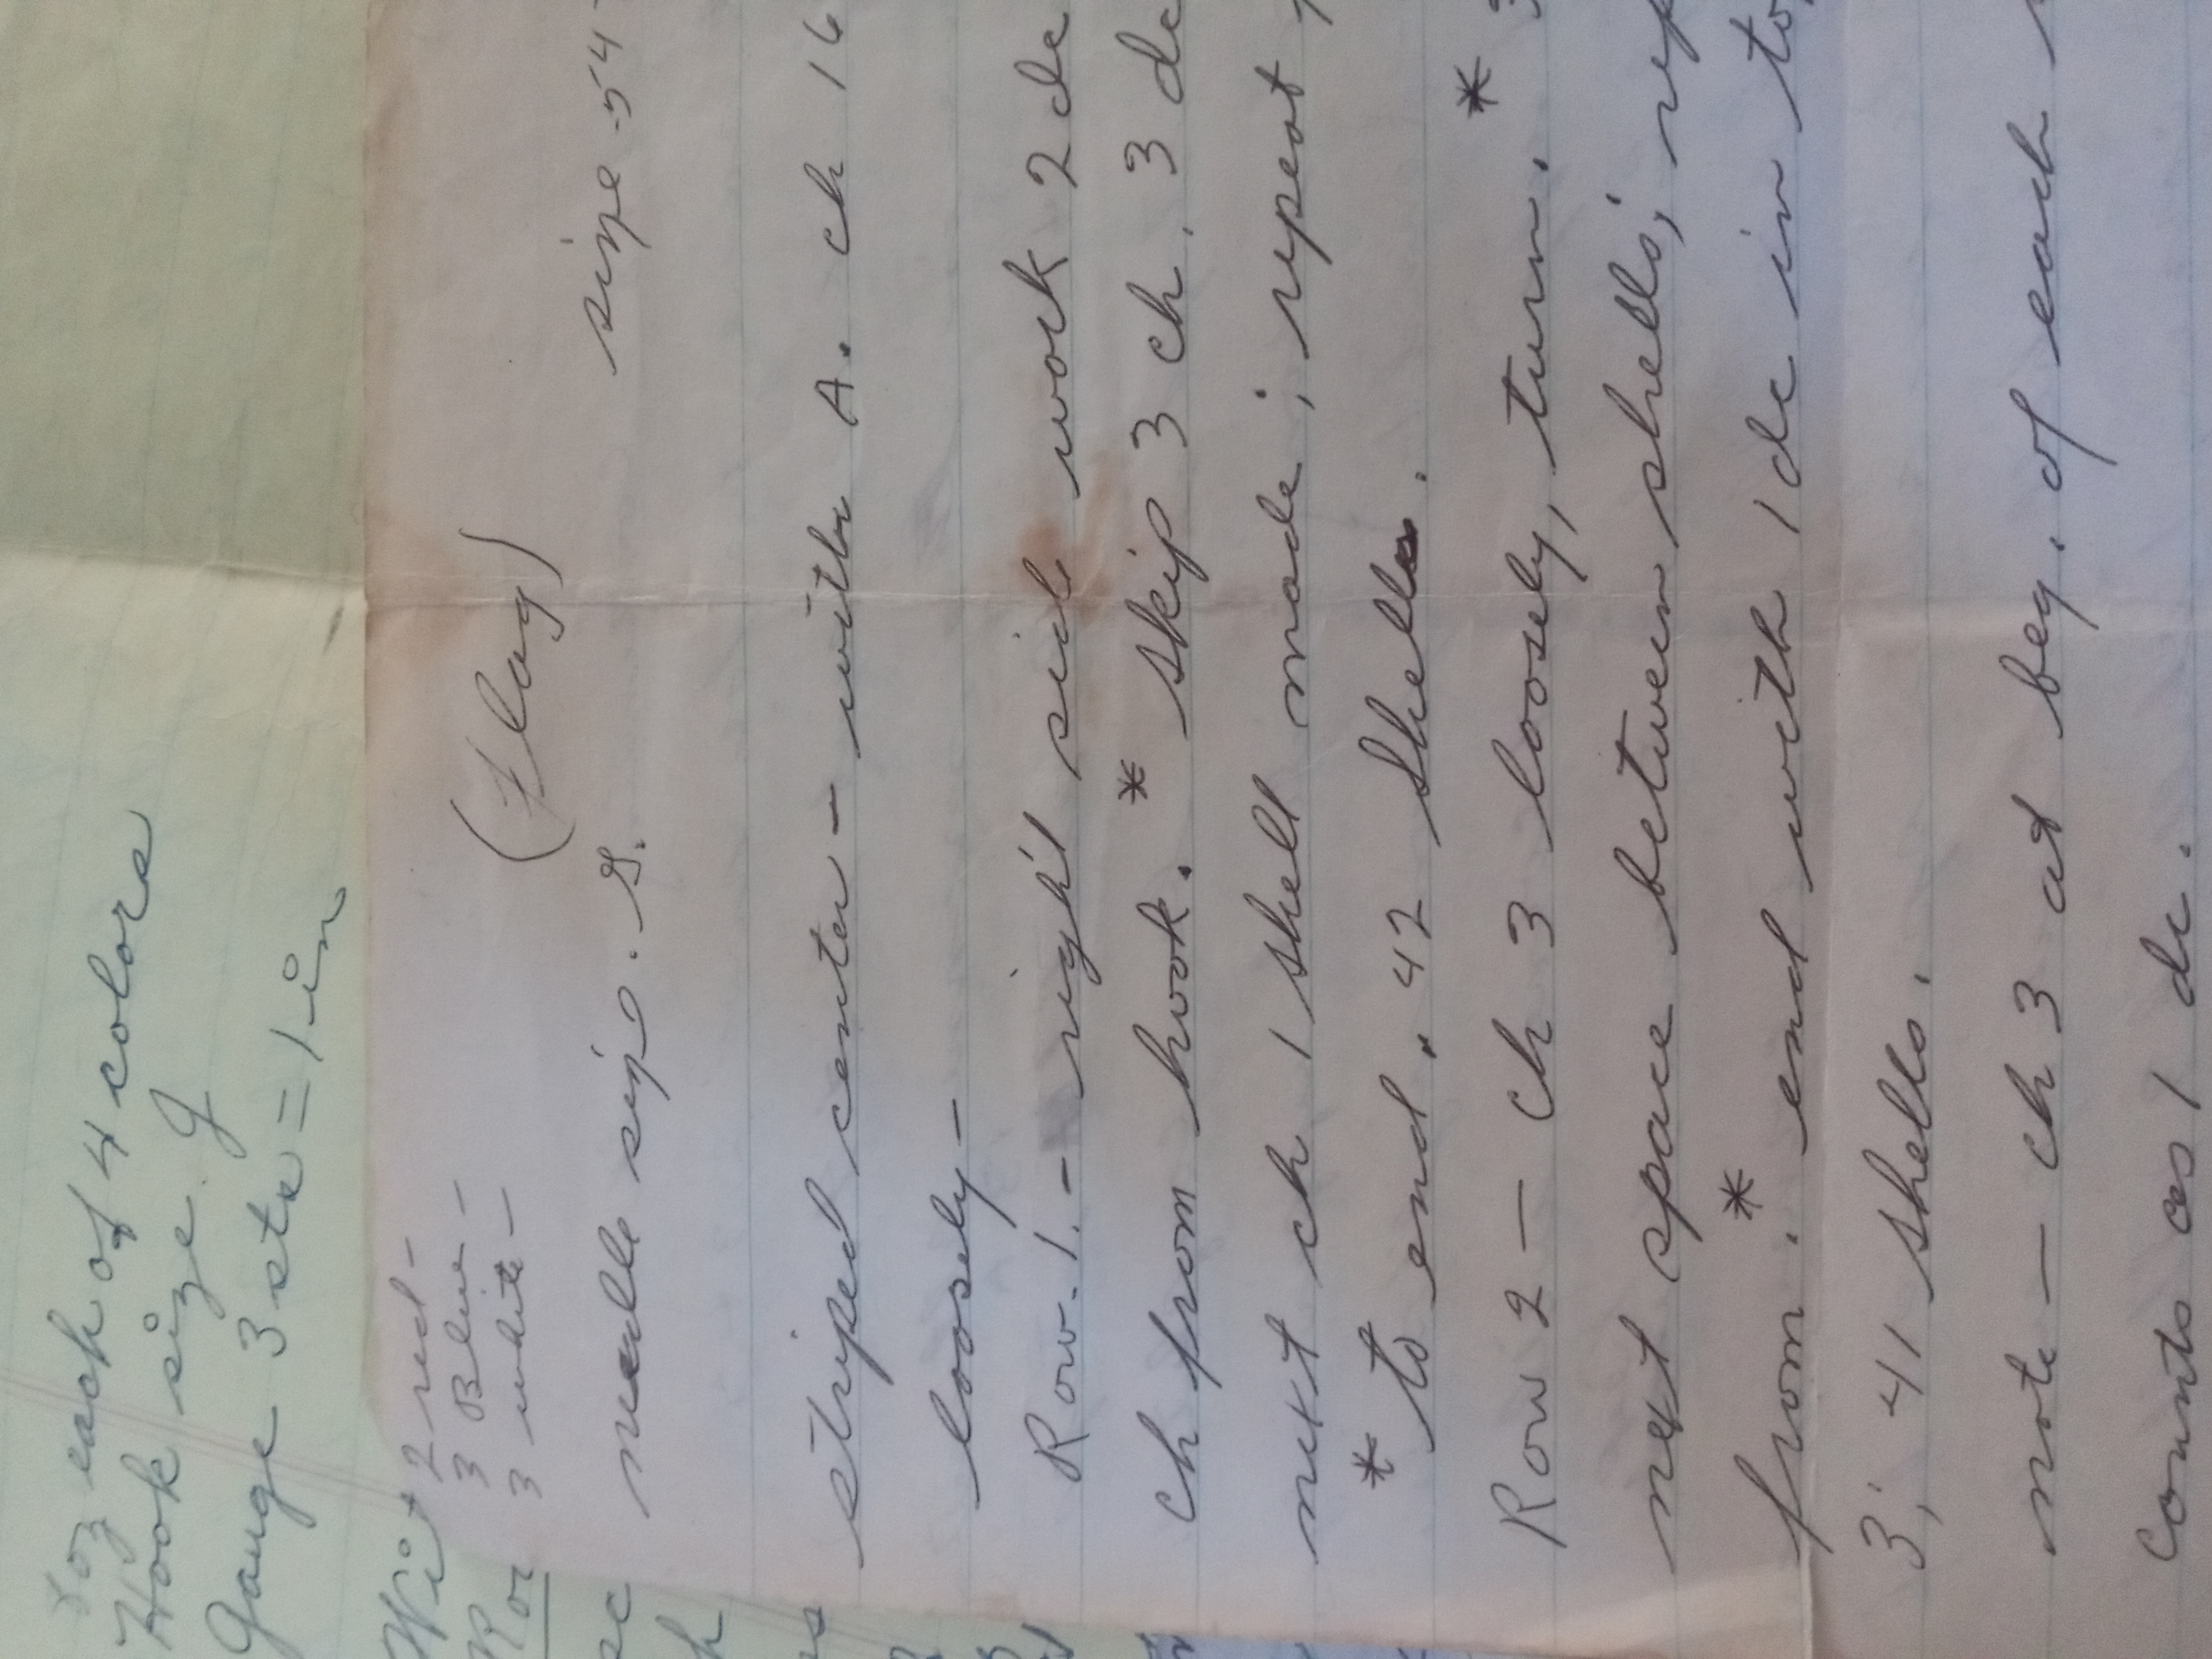 oz each of 4 colors
Hook size J
Gauge 3 sts = 1 in
Wit
Ro
sc
h
2 red -
3 Blue -
3 white -
(flag)
needle size . G. size - 54
striped center - with A. ch 16
loosely -
Row 1. - right side work 2 dc
ch from hook. * skip 3 ch. 3 dc
next ch 1 shell made; repeat
* to end. 42 shells.
Row 2 - ch 3 loosely, turn. * 3
next space between shells; rep
from * end with 1 dc in top
3; 41 shells.
note - ch 3 at beg. of each
counts as 1 dc.